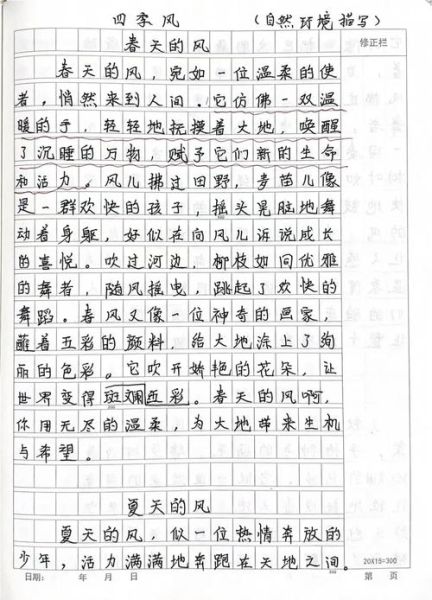 四季风 （自然环境描写）
春天的风 修正栏
春天的风，宛如一位温柔的使
者，悄然来到人间。它仿佛一双温
暖的手，轻轻地抚摸着大地，唤醒
了沉睡的万物，赋予它们新的生命
和活力。风儿拂过田野，麦苗儿像
是一群欢快的孩子，摇头晃脑地舞
动着身躯，好似在向风儿诉说成长
的喜悦。吹过河边，柳枝如同优雅
的舞者，随风摇曳，跳起了欢快的
舞蹈。春风又像一位神奇的画家，
蘸着五彩的颜料，给大地涂上了绚
丽的色彩。它吹开娇艳的花朵，让
世界变得斑斓五彩。春天的风啊，
你用无尽的温柔，为大地带来生机
与希望。
夏天的风
夏天的风，似一位热情奔放的
少年，活力满满地奔跑在天地之间。
20X15=300
日期： 年 月 日 第 页